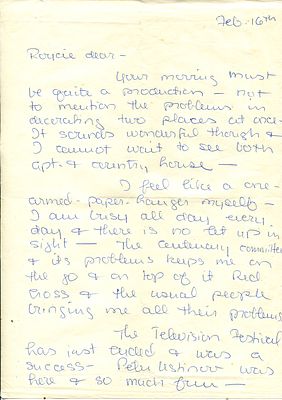 Feb. 16th
Roycie dear -
Your moving must
be quite a production - not
to mention the problems in
decorating two places at once -
It sounds wonderful though &
I cannot wait to see both
apt. & country house -
I feel like a one-
armed-paper-hanger myself -
I am busy all day every
day & there is no let up in
sight - The centenary committee
& its problems keeps me on
the go & on top of it Red
Cross & the usual people
bringing me all their problems
The Television Festival
has just ended & was a
success - Peter Ustinov was
here & so much fun -